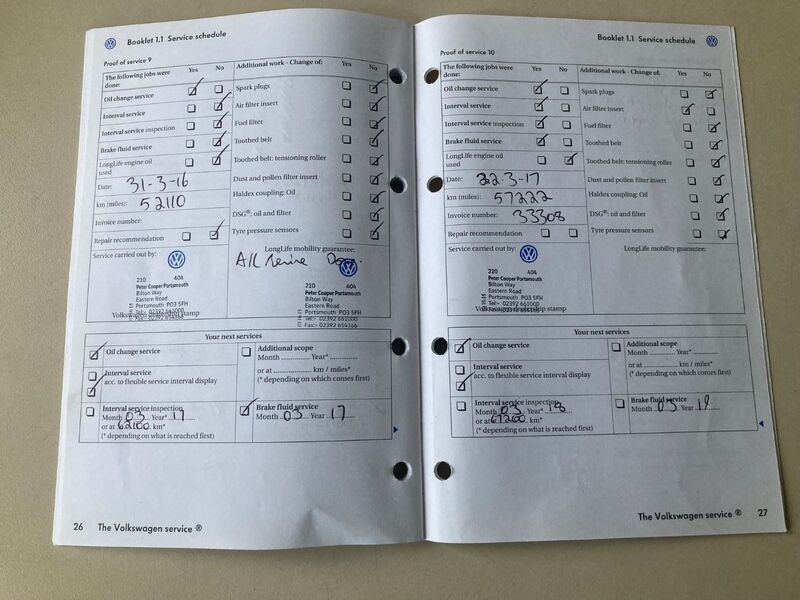 Booklet 1.1 Service schedule
Proof of service 9
The following jobs were done: Yes No
Oil change service
Interval service
Interval service inspection
Brake fluid service
LongLife engine oil used
Date: 31-3-16
km (miles): 52110
Invoice number:
Repair recommendation
Service carried out by:
210 404
Peter Cooper Portsmouth
Bilton Way
Eastern Road
Portsmouth PO3 5FH
Tel:- 02392 661000
02392 654166
Volkswagen dealership stamp
Additional work - Change of: Yes No
Spark plugs
Air filter insert
Fuel filter
Toothed belt
Toothed belt: tensioning roller
Dust and pollen filter insert
Haldex coupling: Oil
DSG®: oil and filter
Tyre pressure sensors
LongLife mobility guarantee:
210 404
Peter Cooper Portsmouth
Bilton Way
Eastern Road
Portsmouth PO3 5FH
Tel:- 02392 661000
Fax:- 02392 654166
Your next services
Oil change service
Interval service
acc. to flexible service interval display
Interval service inspection
Month 03 Year* 17
or at 62100 km*
(* depending on what is reached first)
Additional scope
Month Year*
or at km / miles*
(* depending on which comes first)
Brake fluid service
Month 03 Year 17
26 The Volkswagen service ®
Booklet 1.1 Service schedule
Proof of service 10
The following jobs were done: Yes No
Oil change service
Interval service
Interval service inspection
Brake fluid service
LongLife engine oil used
Date: 22-3-17
km (miles): 57222
Invoice number: 33308
Repair recommendation
Service carried out by:
210 404
Peter Cooper Portsmouth
Bilton Way
Eastern Road
Portsmouth PO3 5FH
Tel:- 02392 661000
02392 654166
Volkswagen dealership stamp
Additional work - Change of: Yes No
Spark plugs
Air filter insert
Fuel filter
Toothed belt
Toothed belt: tensioning roller
Dust and pollen filter insert
Haldex coupling: Oil
DSG®: oil and filter
Tyre pressure sensors
LongLife mobility guarantee:
Your next services
Oil change service
Interval service
acc. to flexible service interval display
Interval service inspection
Month 03 Year* 18
or at 67200 km*
(* depending on what is reached first)
Additional scope
Month Year*
or at km / miles*
(* depending on which comes first)
Brake fluid service
Month 03 Year 19
The Volkswagen service ® 27